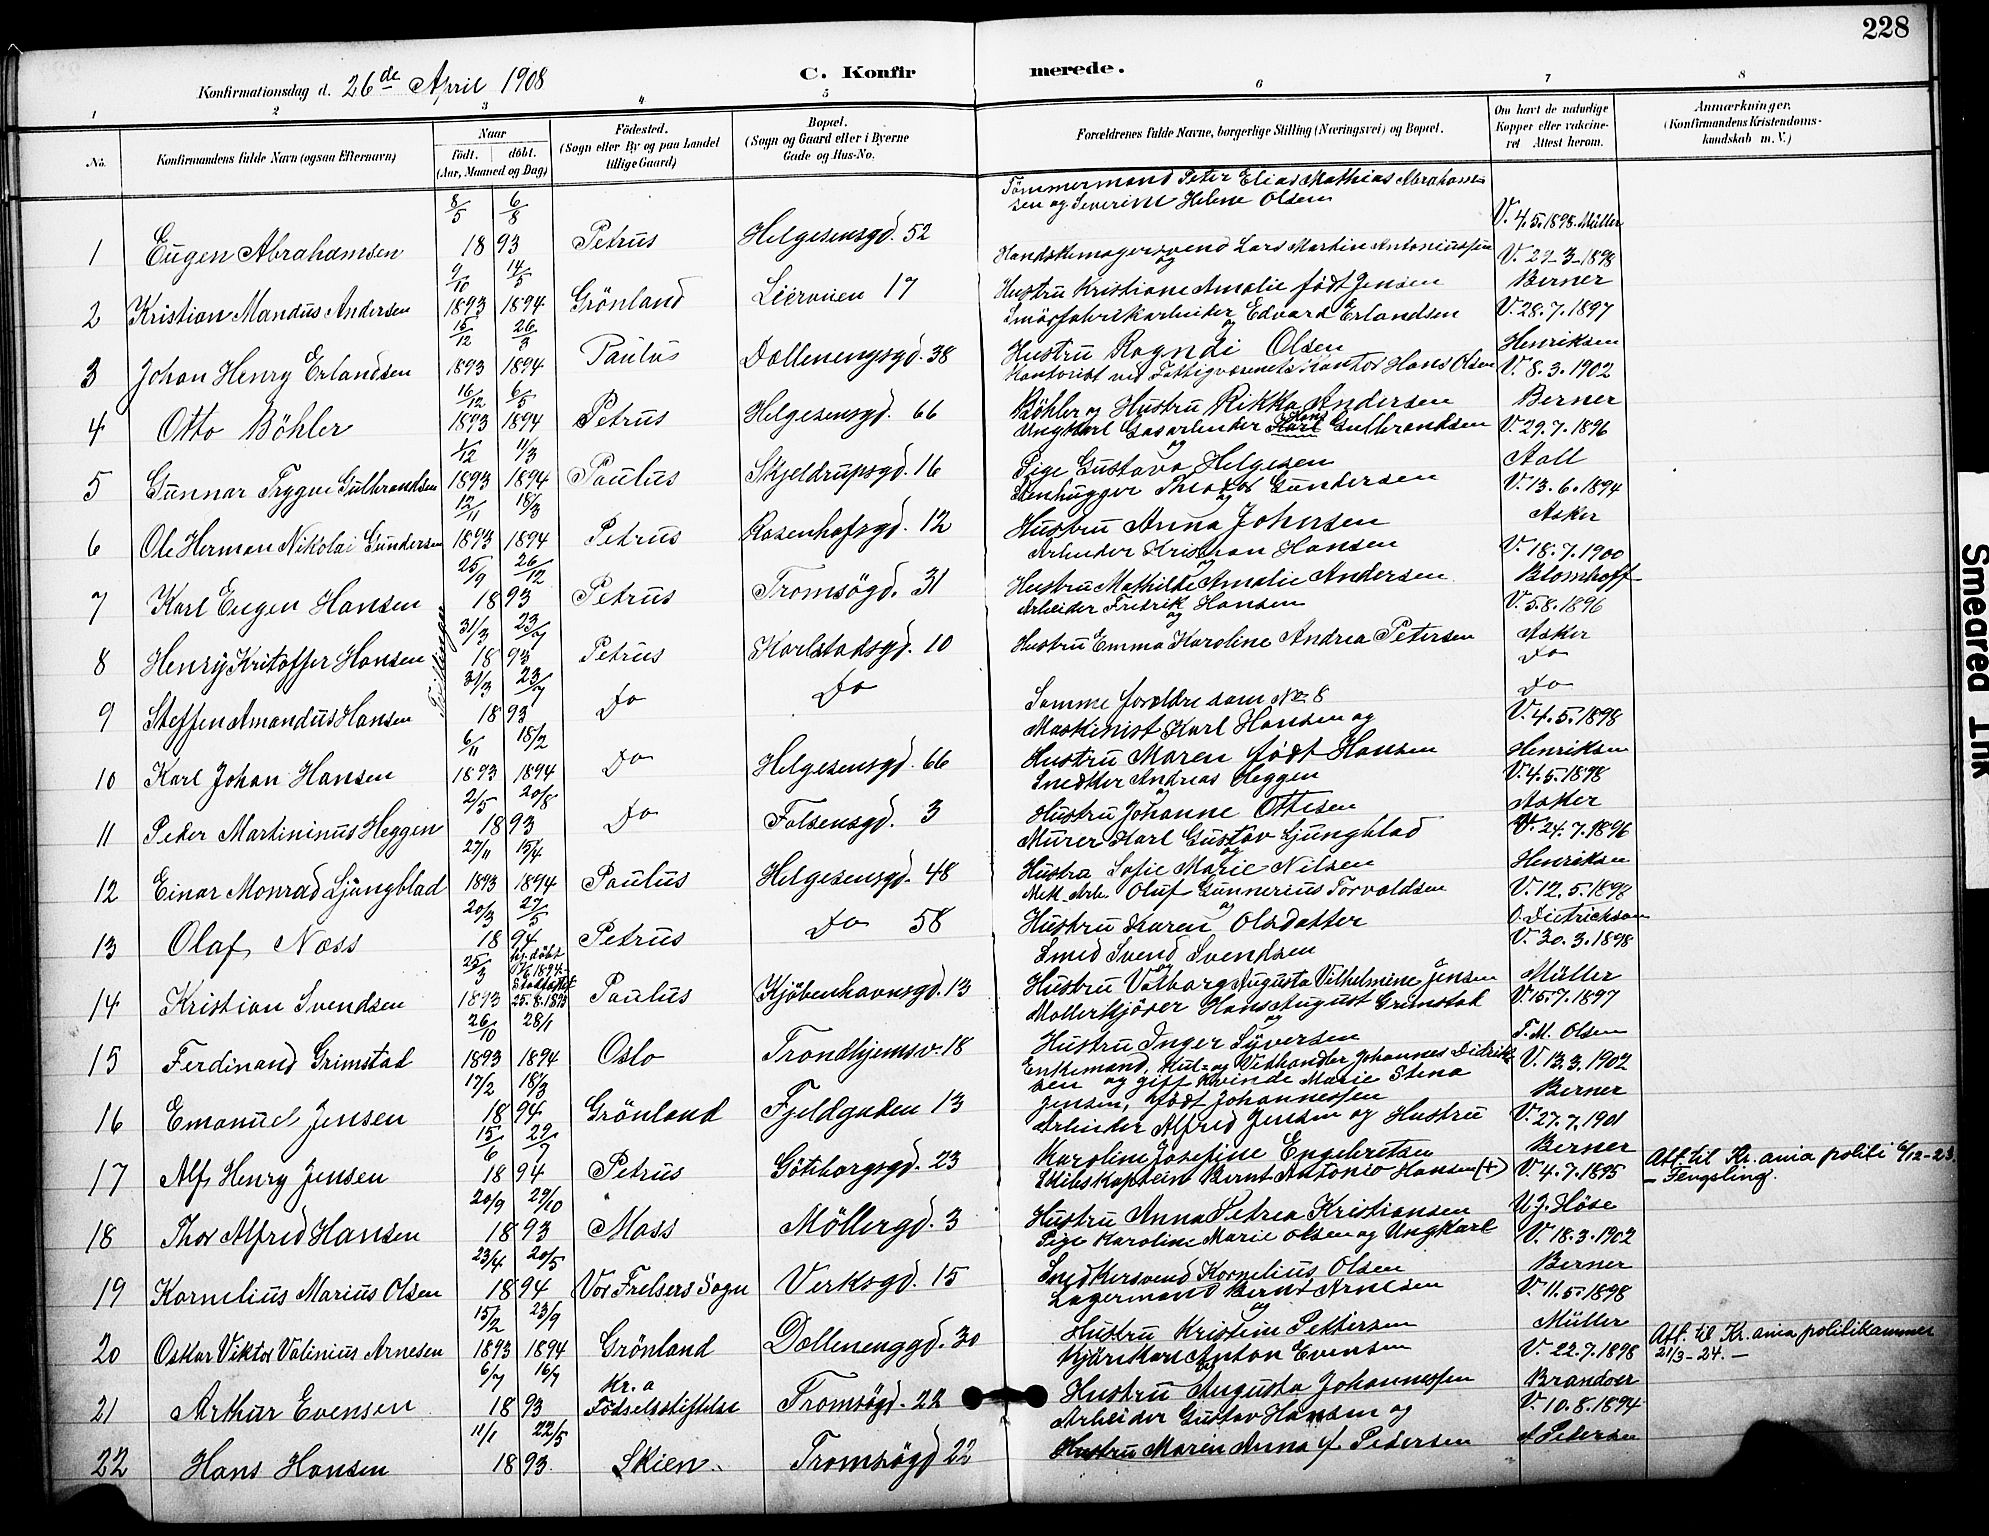 228
C. Konfirmerede.
Konfirmationsdag d. 26de April 1908
1 2 3 4 5 6 7 8
No. Konfirmandens fulde Navn (ogsaa Efternavn) Naar født. døbt. (Aar, Maaned og Dag) Fødested. (Sogn eller By og paa Landet tillige Gaard) Bopæl. (Sogn og Gaard eller i Byerne Gade og Hus-No. Forældrenes fulde Navne, borgerlige Stilling (Næringsvei) og Bopæl. Om havt de naturlige Kopper eller vakcineret Attest herom. Anmærkninger. (Konfirmandens Kristendomskundskab m. V.)
1 Eugen Abrahamsen 8/5 6/8 1893 Petrus Helgesensgd. 52 Tømmermand Peter Elias Mathias Abrahamsen og Severine Helene Olsen V. 4.5.1898 Müller
2 Kristian Mandus Andersen 9/10 1893 14/5 1894 Grönland Lierveien 17 Handskemagersvend Lars Martin Antoniussen og Hustru Kristiane Amalie født Jensen V. 22.3.1898 Berner
3 Johan Henry Erlandsen 16/12 1893 26/3 1894 Paulus Dællenengsgd. 38 Smörfabrikarbeider Edvard Erlandsen og Hustru Ragndi Olsen V. 28.7.1897 Henriksen
4 Otto Böhler 16/12 1893 6/5 1894 Petrus Helgesensgd. 66 Kontorist ved Fattigvæsenets Kontor Hans Olsen Böhler og Hustru Rikka Andersen V. 8.3.1902 Berner
5 Gunnar Trygve Gulbrandsen 1/12 1893 11/3 1894 Paulus Skjeldrupsgd. 16 Ungkarl Gasarbeider Karl Hans Gulbrandsen og Pige Gustava Helgesen V. 29.7.1896 Aall
6 Ole Herman Nikolai Gundersen 12/11 1893 18/3 1894 Petrus Rosenhofsgd. 12 Stenhugger Theodor Gundersen og Hustru Anna Johnsen V. 13.6.1894 Asker
7 Karl Eugen Hansen 25/9 26/12 1893 Petrus Tromsögd. 31 Arbeider Kristian Hansen og Hustru Mathilde Amalie Andersen V. 18.7.1900 Blomhoff
8 Henry Kritoffer Hansen Tvillinger 31/3 23/7 1893 Petrus Karlstadsgd. 10 Arbeider Fredrik Hansen og Hustru Emma Karoline Andrea Petersen V. 5.8.1896 Asker
9 Steffen Amandus Hansen 31/3 23/7 1893 Do Do Samme forældre som No. 8 Do Do
10 Karl Johan Hansen 6/11 1893 18/2 1894 Do Helgesensgd. 66 Maskinist Karl Hansen og Hustru Maren født Hansen V. 4.5.1898 Henriksen
11 Peder Martininus Heggen 2/5 20/8 1893 Do Falsensgd. 3 Snedker Andreas Heggen og Hustru Johanne Ottesen V. 4.5.1898 Asker
12 Einar Monrad Ljüngblad 27/11 1893 15/4 1894 Paulus Helgesensgd. 48 Murer Karl Gustav Ljungblad og Hustru Sofie Marie Nilsen V. 24.7.1896 Henriksen
13 Olaf Næss 20/3 27/5 1894 Petrus Do 58 Mek. Arb. Oluf Gunnerius Torvaldsen og Hustru Karen Olsdatter V. 12.5.1898 O. Dietrichson
14 Kristian Svendsen 25/3 1893 hj. döbt 1894 Stadfæstet 25.8.1895 Paulus Kjöbenhavnsgd. 13 Smed Svend Svendsen og Hustru Valborg Augusta Vilhelmine Jensen V. 30.3.1898 Müller
15 Ferdinand Grimstad 26/10 1893 28/1 1894 Oslo Trondhjemsv. 18 Möllerkjörer Hans August Grimstad og Hustru Inger Syversen V. 15.7.1897 T. M. Olsen
16 Emanuel Jensen 17/2 18/3 1894 Grönland Fjeldgaden 13 Enkemand, Kul- og Vedhandler Johannes Didriksen og gift Kvinde Marie Stina Jensen, født Johannessen V. 13.3.1902 Berner
17 Alf Henry Jensen 15/6 29/7 1894 Petrus Göteborgsgd. 23 Arbeider Alfred Jensen og Hustru Karoline Josefine Engebretsen V. 27.7.1901 Berner Att. til Kr.ania politi 6/12-23. - Fengsling.
18 Thor Alfred Hansen 20/9 29/10 1893 Moss Möllergd. 3 Skibskaptein Bernt Antonio Hansen (+) Hustru Anna Petrea Kristiansen V. 4.7.1895 U. J. Höse
19 Kornelius Marius Olsen 23/4 20/5 1894 Vor Frelsers Sogn Verksgd. 15 Pige Karoline Marie Olsen og Ungkarl Snedkersvend Kornelius Olsen V. 18.3.1902 Berner
20 Oskar Viktor Valinius Arnesen 15/2 1893 23/9 1894 Grönland Dællenenggd. 30 Lagermand Bernt Arnesen og Hustru Kristine Pettersen V. 11.5.1898 Müller Att. til Kr.ania politikammer 21/3-24. -
21 Arthur Evensen 6/7 16/7 1893 Kr.a Födselsstiftelse Tromsögd. 22 Kjörekarl Anton Evensen og Hustru Augusta Johannessen V. 22.7.1898 Brandver
22 Hans Hansen 11/1 22/5 1893 Skien. Tromsögd 22 Arbeider Gustav Hansen og Hustru Maren Anna f. Pedersen V. 10.8.1894 A Petersen
Smeared Ink